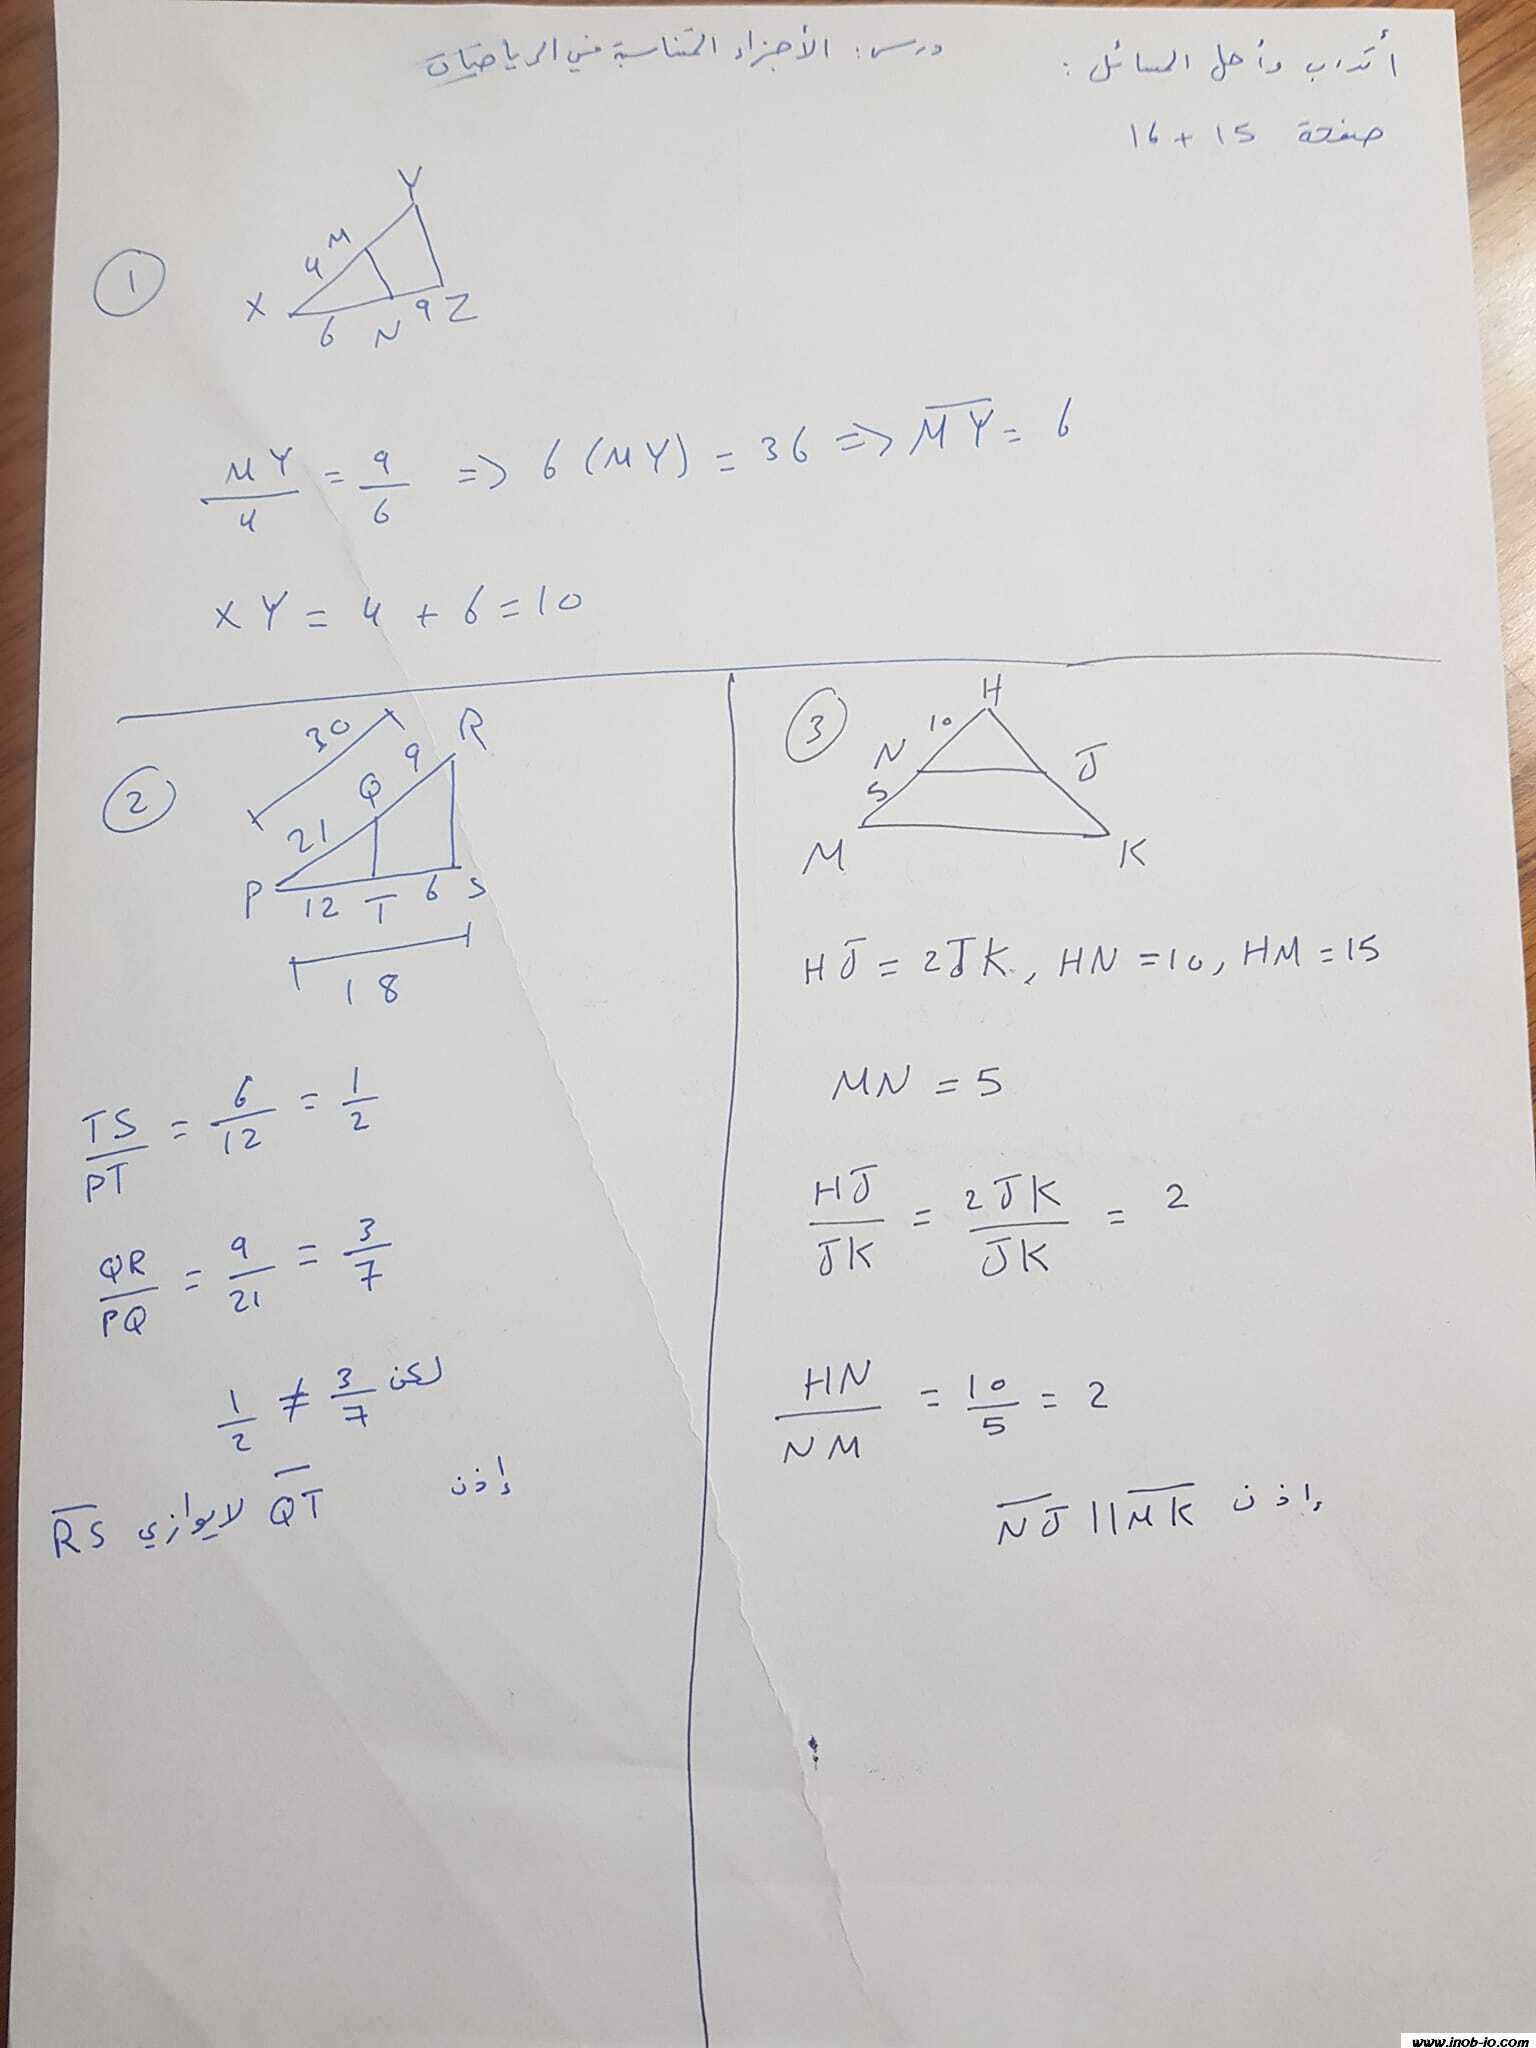 أتدرب وأحل المسائل :
درس : الأجزاء المتناسبة في الرياضيات
صفحة 15 + 16
1
Y
M
4
X
6 N 9 Z
MY/4 = 9/6 => 6 (MY) = 36 => MY = 6
XY = 4 + 6 = 10
2
30
R
9
Q
21
P
12 T 6 S
18
TS/PT = 6/12 = 1/2
QR/PQ = 9/21 = 3/7
لكن 1/2 ≠ 3/7
إذن QT لا يوازي RS
3
H
10
N J
5
M K
HJ = 2JK, HN = 10, HM = 15
MN = 5
HJ/JK = 2JK/JK = 2
HN/NM = 10/5 = 2
إذن NJ || MK
www.jnob-jo.com